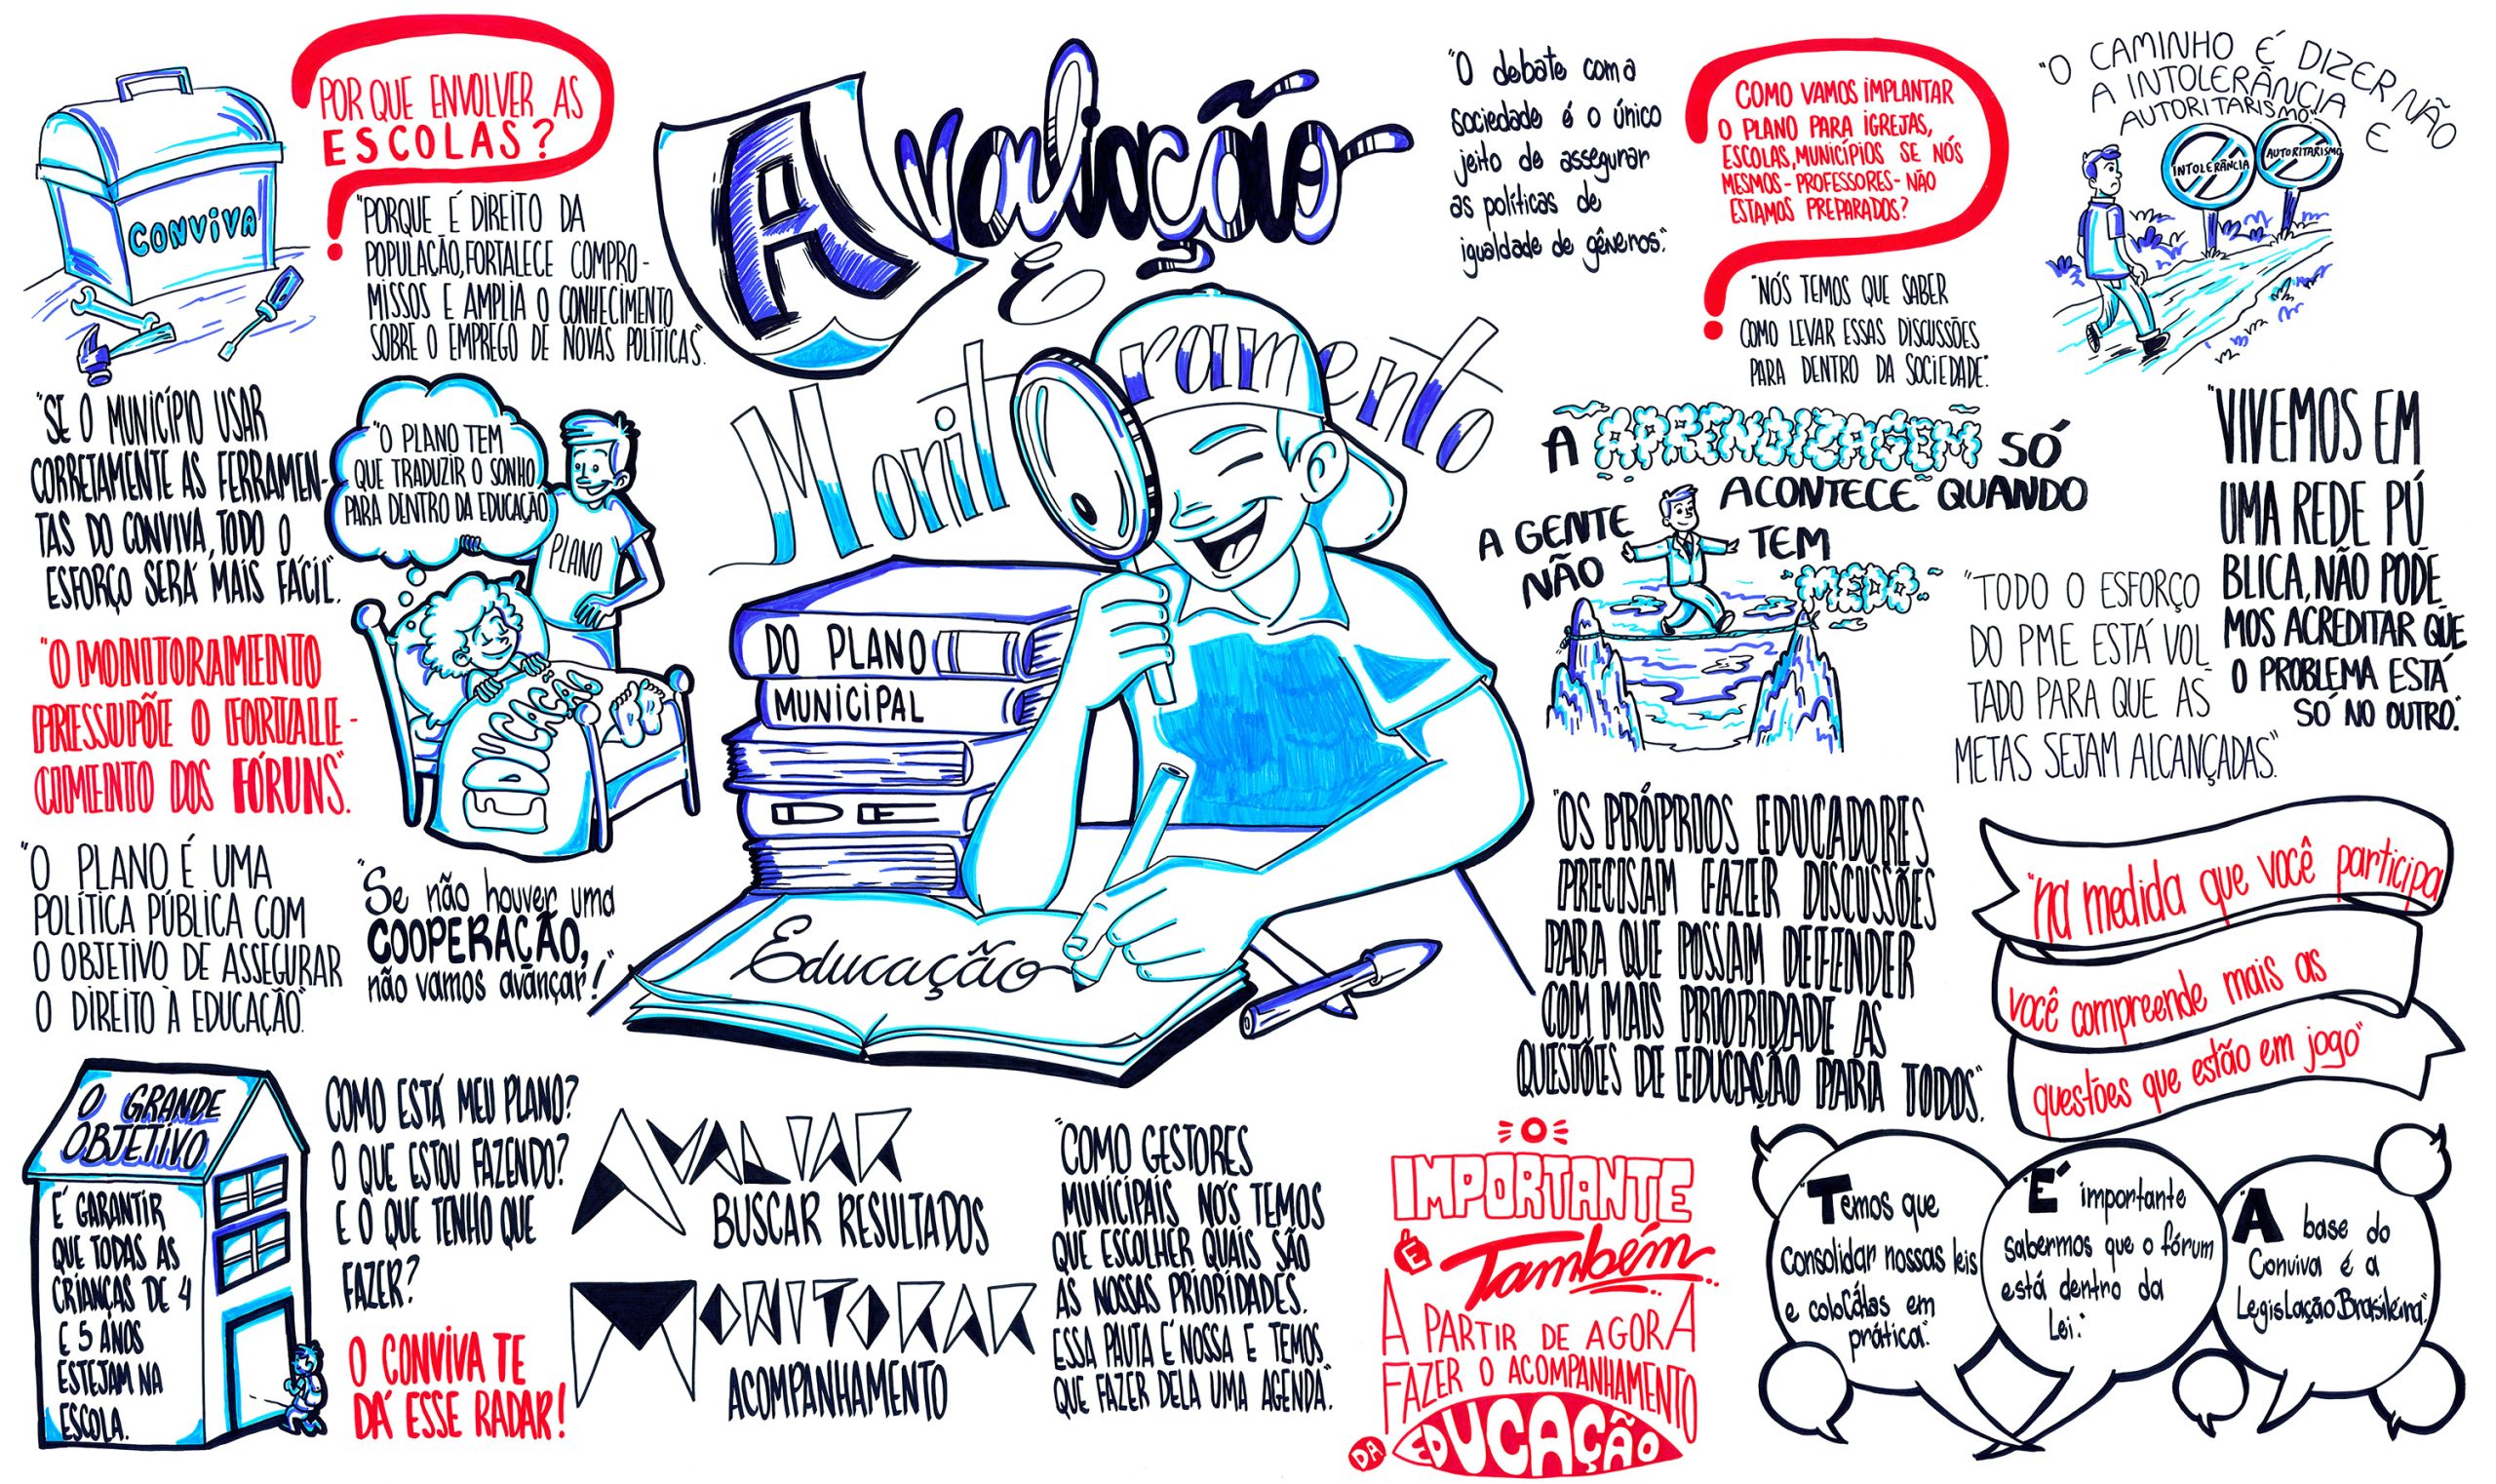 CONVIVA
POR QUE ENVOLVER AS
ESCOLAS?
"PORQUE É DIREITO DA
POPULAÇÃO, FORTALECE COMPRO-
MISSOS E AMPLIA O CONHECIMENTO
SOBRE O EMPREGO DE NOVAS POLÍTICAS".
"SE O MUNICÍPIO USAR
CORRETAMENTE AS FERRAMEN-
TAS DO CONVIVA, TODO O
ESFORÇO SERÁ MAIS FÁCIL".
"O PLANO TEM
QUE TRADUZIR O SONHO
PARA DENTRO DA EDUCAÇÃO
PLANO
EDUCAÇÃO
"O MONITORAMENTO
PRESSUPÕE O FORTALE-
CIMENTO DOS FÓRUNS".
"O PLANO É UMA
POLÍTICA PÚBLICA COM
O OBJETIVO DE ASSEGURAR
O DIREITO À EDUCAÇÃO".
"Se não houver uma
COOPERAÇÃO,
não vamos avançar!"
O GRANDE
OBJETIVO
É GARANTIR
QUE TODAS AS
CRIANÇAS DE 4
E 5 ANOS
ESTEJAM NA
ESCOLA.
COMO ESTÁ MEU PLANO?
O QUE ESTOU FAZENDO?
E O QUE TENHO QUE
FAZER?
O CONVIVA TE
DÁ ESSE RADAR!
Avaliação
E
Monitoramento
DO PLANO
MUNICIPAL
DE
Educação
AVALIAR
BUSCAR RESULTADOS
MONITORAR
ACOMPANHAMENTO
"COMO GESTORES
MUNICIPAIS NÓS TEMOS
QUE ESCOLHER QUAIS SÃO
AS NOSSAS PRIORIDADES.
ESSA PAUTA É NOSSA E TEMOS
QUE FAZER DELA UMA AGENDA".
"O debate com a
sociedade é o único
jeito de assegurar
as políticas de
igualdade de gêneros."
COMO VAMOS IMPLANTAR
O PLANO PARA IGREJAS,
ESCOLAS, MUNICÍPIOS SE NÓS
MESMOS - PROFESSORES - NÃO
ESTAMOS PREPARADOS?
"NÓS TEMOS QUE SABER
COMO LEVAR ESSAS DISCUSSÕES
PARA DENTRO DA SOCIEDADE".
"O CAMINHO É DIZER NÃO
A INTOLERÂNCIA E
AUTORITARISMO".
INTOLERÂNCIA
AUTORITARISMO
A APRENDIZAGEM SÓ
ACONTECE QUANDO
A GENTE
NÃO TEM
MEDO
"VIVEMOS EM
UMA REDE PÚ
BLICA, NÃO PODE
MOS ACREDITAR QUE
O PROBLEMA ESTÁ
SÓ NO OUTRO."
"TODO O ESFORÇO
DO PME ESTÁ VOL
TADO PARA QUE AS
METAS SEJAM ALCANÇADAS."
"OS PRÓPRIOS EDUCADORES
PRECISAM FAZER DISCUSSÕES
PARA QUE POSSAM DEFENDER
COM MAIS PRIORIDADE AS
QUESTÕES DE EDUCAÇÃO PARA TODOS."
"na medida que você participa
você compreende mais as
questões que estão em jogo"
IMPORTANTE
É Também
A PARTIR DE AGORA
FAZER O ACOMPANHAMENTO
DA EDUCAÇÃO
"Temos que
Consolidar nossas leis
e colocálas em
prática".
"É importante
sabermos que o fórum
está dentro da
Lei."
"A base do
Conviva é a
Legislação Brasileira".